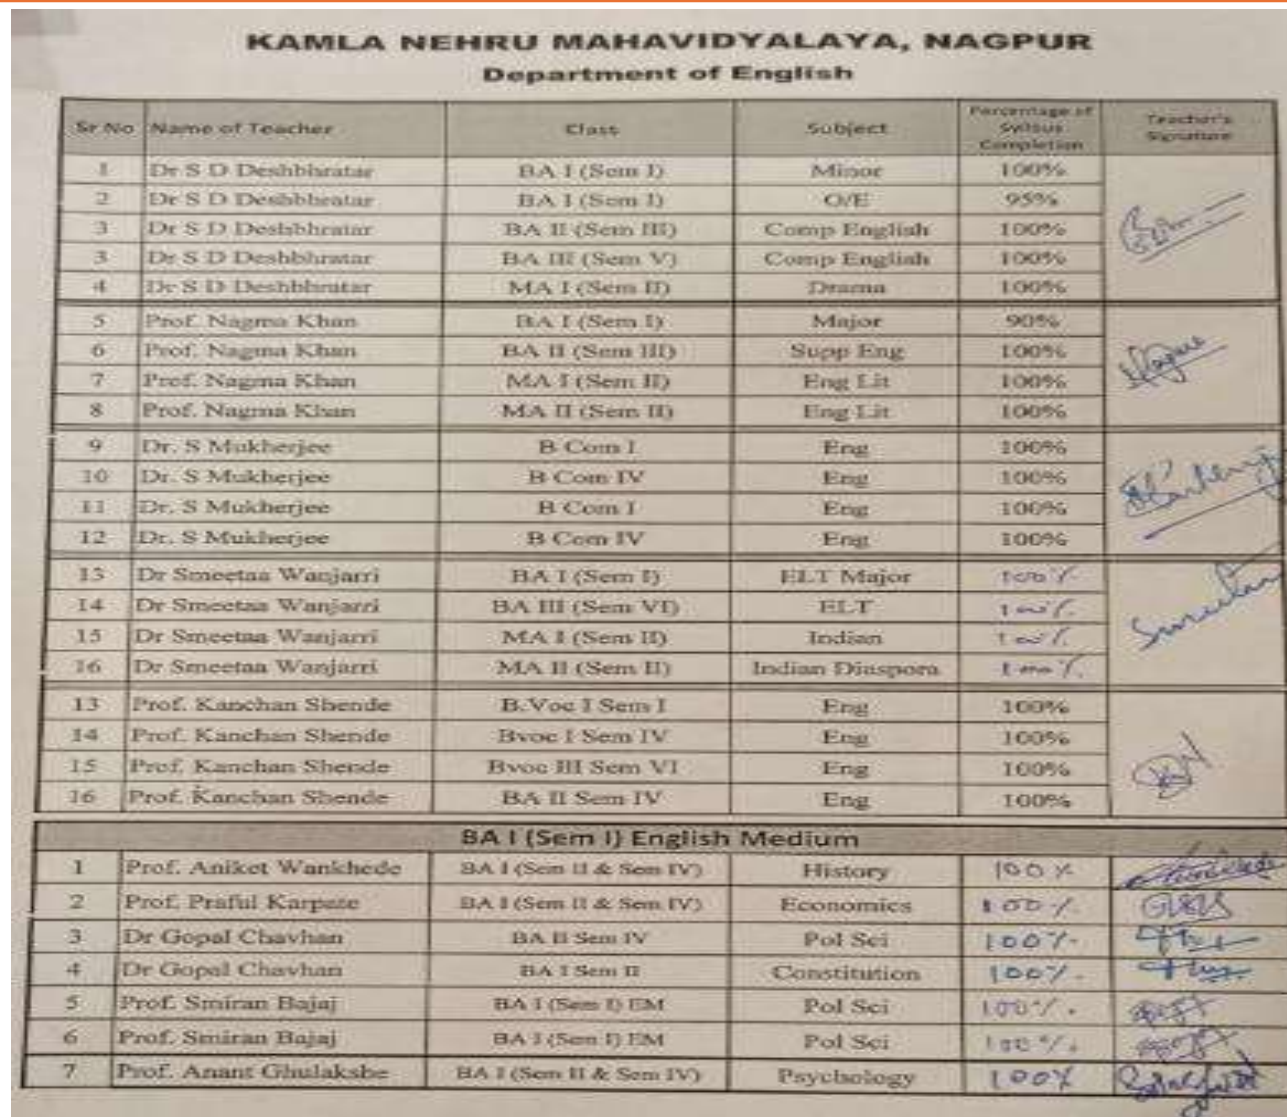 KAMLA NEHRU MAHAVIDYALAYA, NAGPUR
Department of English
Sr No Name of Teacher Class Subject Percentage of Syllbus Completion Teacher's Signature
1 Dr S D Deshbhratar BA I (Sem I) Minor 100%
2 Dr S D Deshbhratar BA I (Sem I) O/E 95%
3 Dr S D Deshbhratar BA II (Sem III) Comp English 100%
3 Dr S D Deshbhratar BA III (Sem V) Comp English 100%
4 Dr S D Deshbhratar MA I (Sem II) Drama 100%
5 Prof. Nagma Khan BA I (Sem I) Major 90%
6 Prof. Nagma Khan BA II (Sem III) Supp Eng 100%
7 Prof. Nagma Khan MA I (Sem II) Eng Lit 100%
8 Prof. Nagma Khan MA II (Sem II) Eng Lit 100%
9 Dr. S Mukherjee B Com I Eng 100%
10 Dr. S Mukherjee B Com IV Eng 100%
11 Dr. S Mukherjee B Com I Eng 100%
12 Dr. S Mukherjee B Com IV Eng 100%
13 Dr Smeetaa Wanjarri BA I (Sem I) ELT Major 100%
14 Dr Smeetaa Wanjarri BA III (Sem VI) ELT 100%
15 Dr Smeetaa Wanjarri MA I (Sem II) Indian 100%
16 Dr Smeetaa Wanjarri MA II (Sem II) Indian Diaspora 100%
13 Prof. Kanchan Shende B.Voc I Sem I Eng 100%
14 Prof. Kanchan Shende Bvoc I Sem IV Eng 100%
15 Prof. Kanchan Shende Bvoc III Sem VI Eng 100%
16 Prof. Kanchan Shende BA II Sem IV Eng 100%
BA I (Sem I) English Medium
1 Prof. Aniket Wankhede BA I (Sem II & Sem IV) History 100%
2 Prof. Praful Karpate BA I (Sem II & Sem IV) Economics 100%
3 Dr Gopal Chavhan BA II Sem IV Pol Sci 100%
4 Dr Gopal Chavhan BA I Sem II Constitution 100%
5 Prof. Smiran Bajaj BA I (Sem I) EM Pol Sci 100%
6 Prof. Smiran Bajaj BA I (Sem I) EM Pol Sci 100%
7 Prof. Anant Ghulakshe BA I (Sem II & Sem IV) Psychology 100%